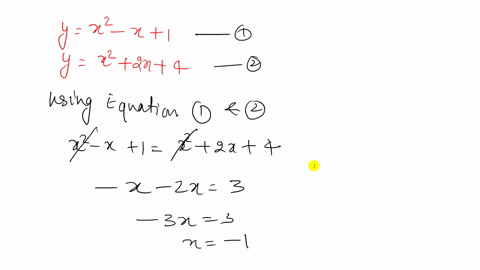 y = x² - x + 1 —— ①
y = x² + 2x + 4 —— ②
using Equation ① & ②
x² - x + 1 = x² + 2x + 4
- x - 2x = 3
- 3x = 3
x = -1